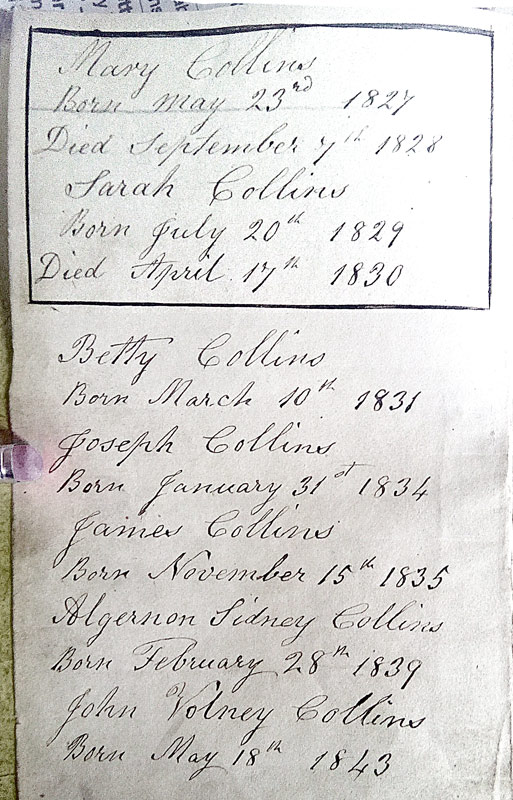 Mary Collins
Born May 23rd 1827
Died September 7th 1828
Sarah Collins
Born July 20th 1829
Died April 17th 1830
Betty Collins
Born March 10th 1831
Joseph Collins
Born January 31st 1834
James Collins
Born November 15th 1835
Algernon Sidney Collins
Born February 28th 1839
John Volney Collins
Born May 18th 1843